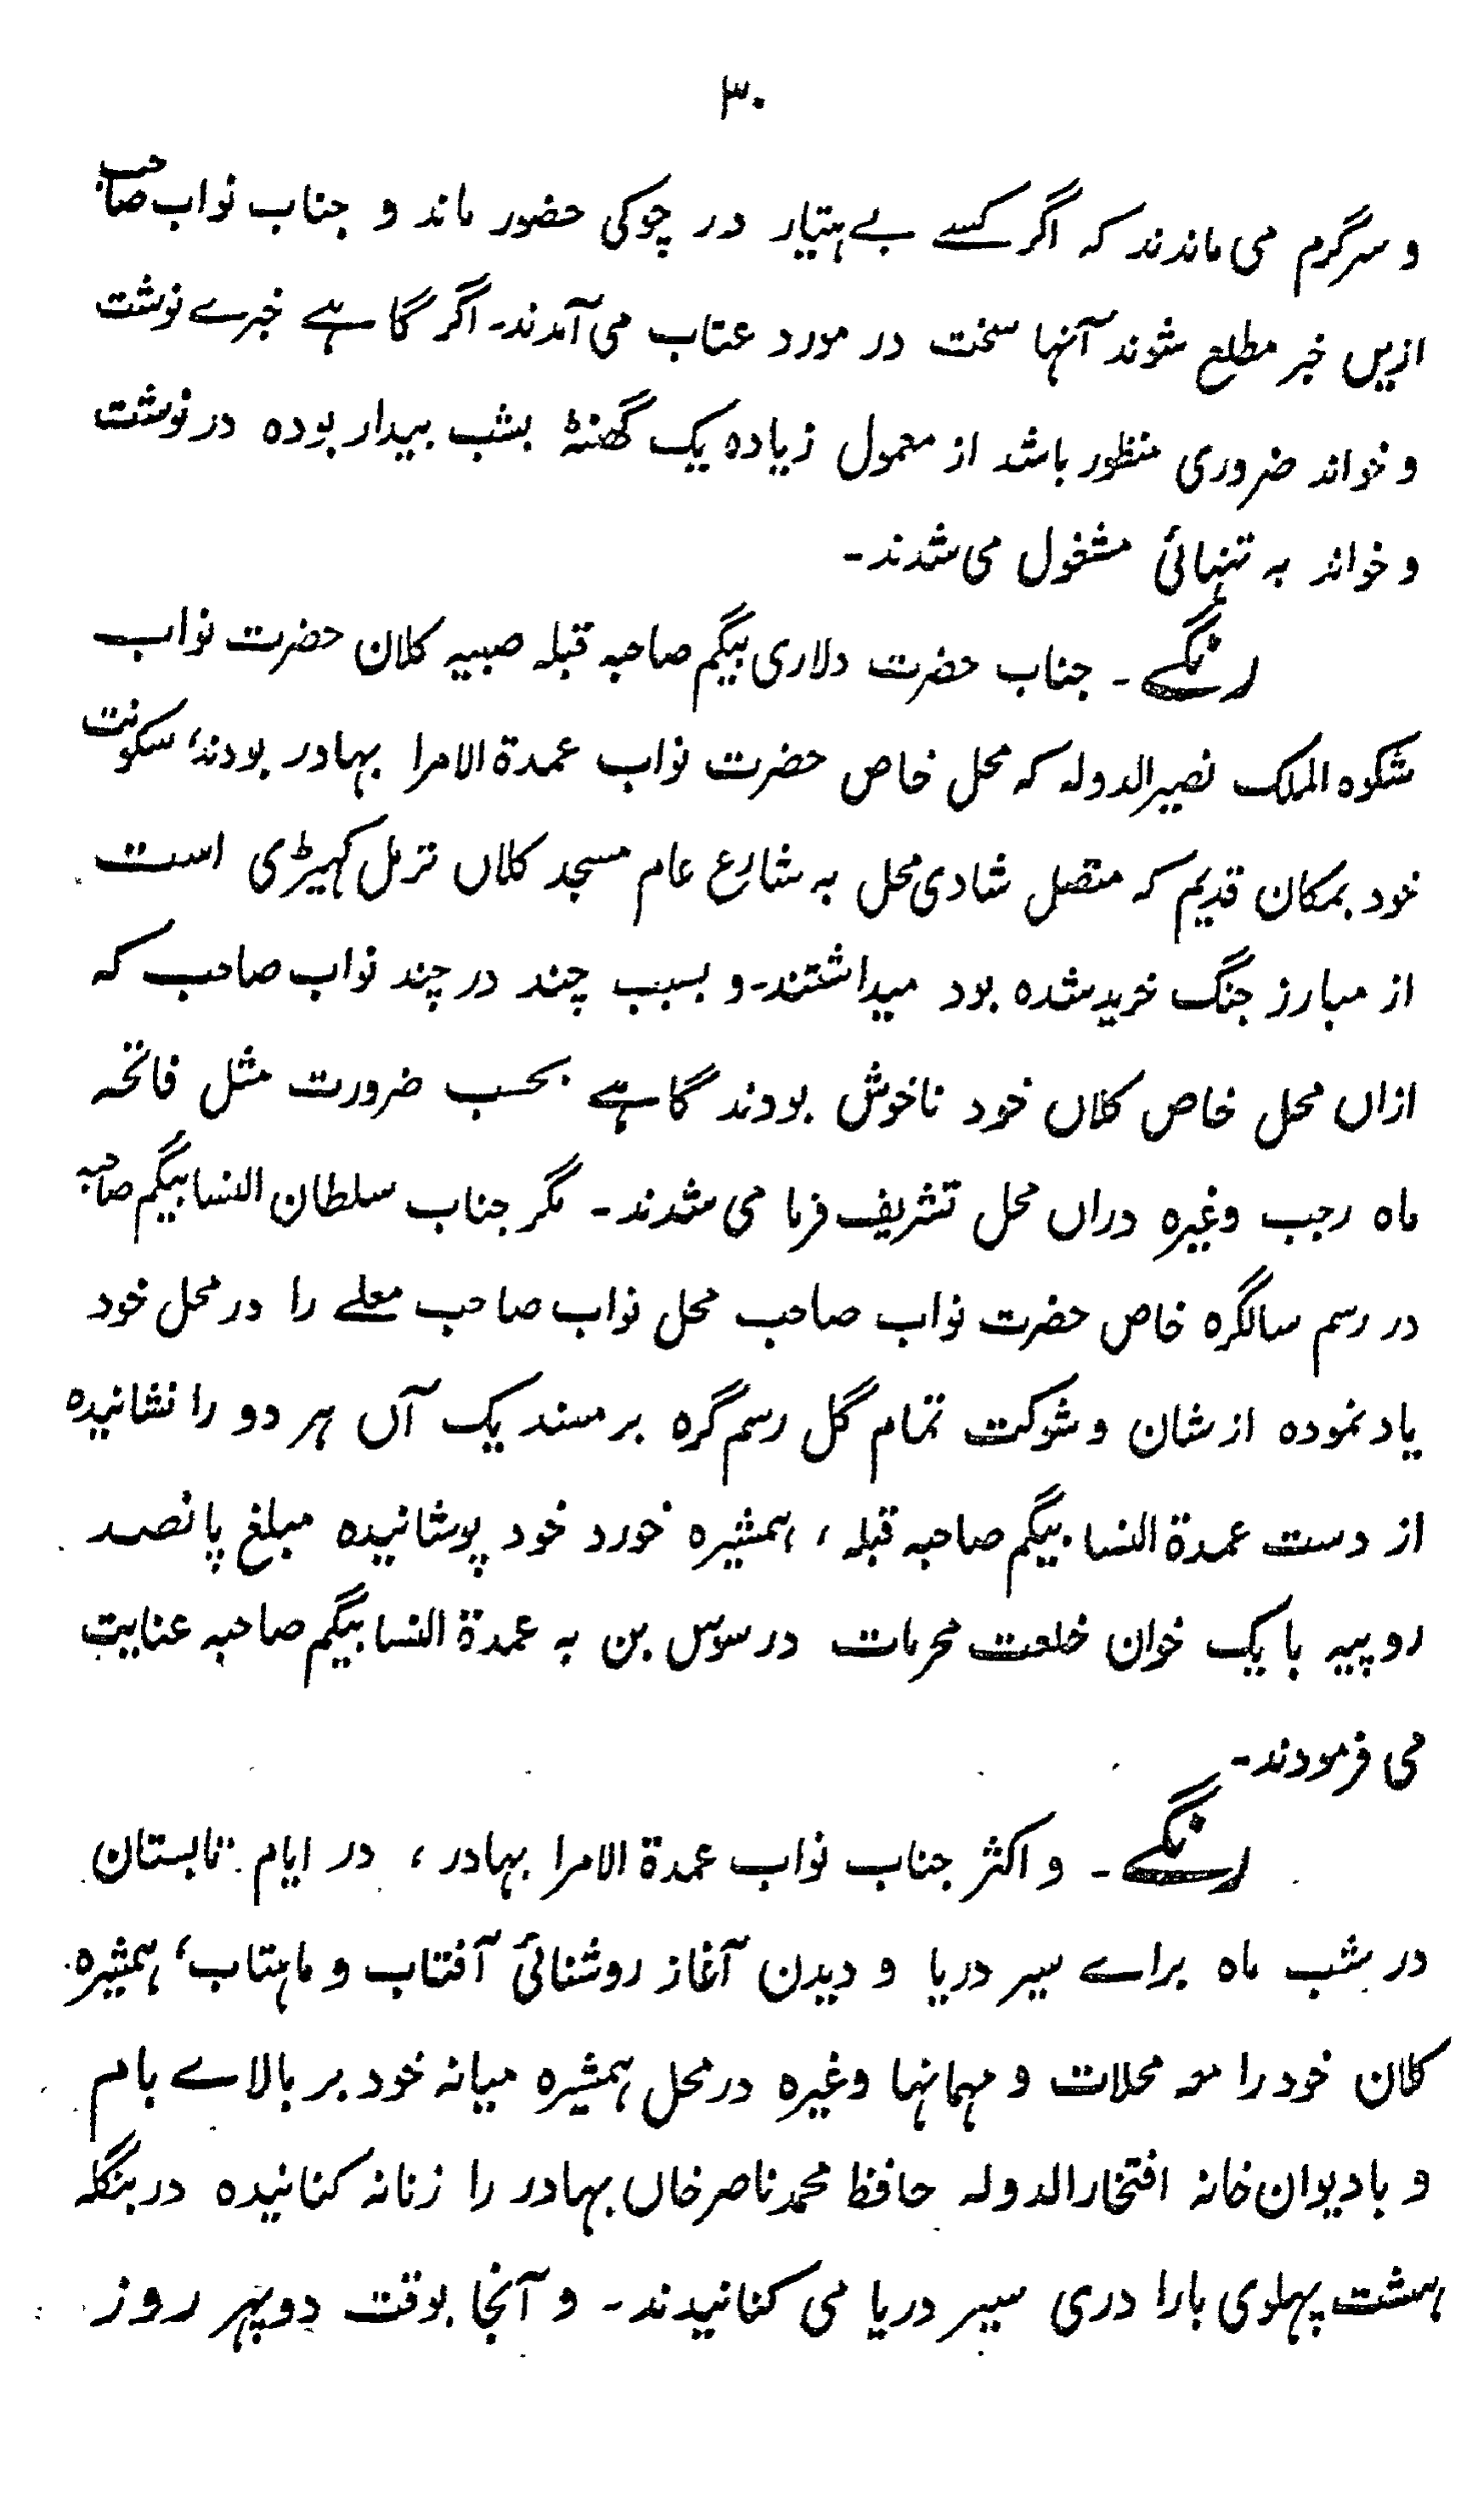 ۳۰
و سرگرم می ماندند کہ اگر کسے بے ہتیار در چوکی حضور ماند و جناب نواب صاحب
ازیں خبر مطلع شوند آنہا سخت در مورد عتاب می آمدند۔ اگر گاہے خبرے نوشت
و خواند ضروری منظور باشد از معمول زیادہ یک گھنٹۂ بشب بیدار بودہ در نوشت
و خواند بہ تنہائی مشغول می شدند۔
رنگے۔ جناب حضرت دلاری بیگم صاحبہ قبلہ صبیہ کلان حضرت نواب
شکوہ الملک نصیرالدولہ کہ محل خاص حضرت نواب عمدۃ الامرا بہادر بودند، سکونت
خود بمکان قدیم کہ متصل شادی محل بہ شارع عام مسجد کلاں ترمل کہیڑی است
از مبارز جنگ خرید شدہ بود میداشتند۔ و بسبب چند در چند نواب صاحب کہ
ازاں محل خاص کلاں خود ناخوش بودند گاہے بحسب ضرورت مثل فاتحہ
ماہ رجب وغیرہ دراں محل تشریف فرما می شدند۔ مگر جناب سلطان النسا بیگم صاحبہ
در رسم سالگرہ خاص حضرت نواب صاحب محل نواب صاحب معلے را در محل خود
یاد نمودہ از شان و شوکت تمام گل رسم گرہ بر مسند یک آں ہر دو را نشانیدہ
از دست عمدۃ النسا بیگم صاحبہ قبلہ، ہمشیرہ خورد خود پوشانیدہ مبلغ پانصد
روپیہ با یک خوان خلعت محرمات در سوس بن بہ عمدۃ النسا بیگم صاحبہ عنایت
می فرمودند۔
رنگے۔ و اکثر جناب نواب عمدۃ الامرا بہادر، در ایام تابستان
در شب ماہ براے سیر دریا و دیدن آغاز روشنائی آفتاب و ماہتاب، ہمشیرہ
کلان خود را مہ محلات و مہمانہا وغیرہ در محل ہمشیرہ میانہ خود بر بالاے بام
و با دیوان خانہ افتخارالدولہ حافظ محمد ناصر خاں بہادر را زنانہ کنانیدہ در بنگلہ
ہشت پہلوی بارا دری سیر دریا می کنانیدند۔ و آنجا بوقت دوپہر روز